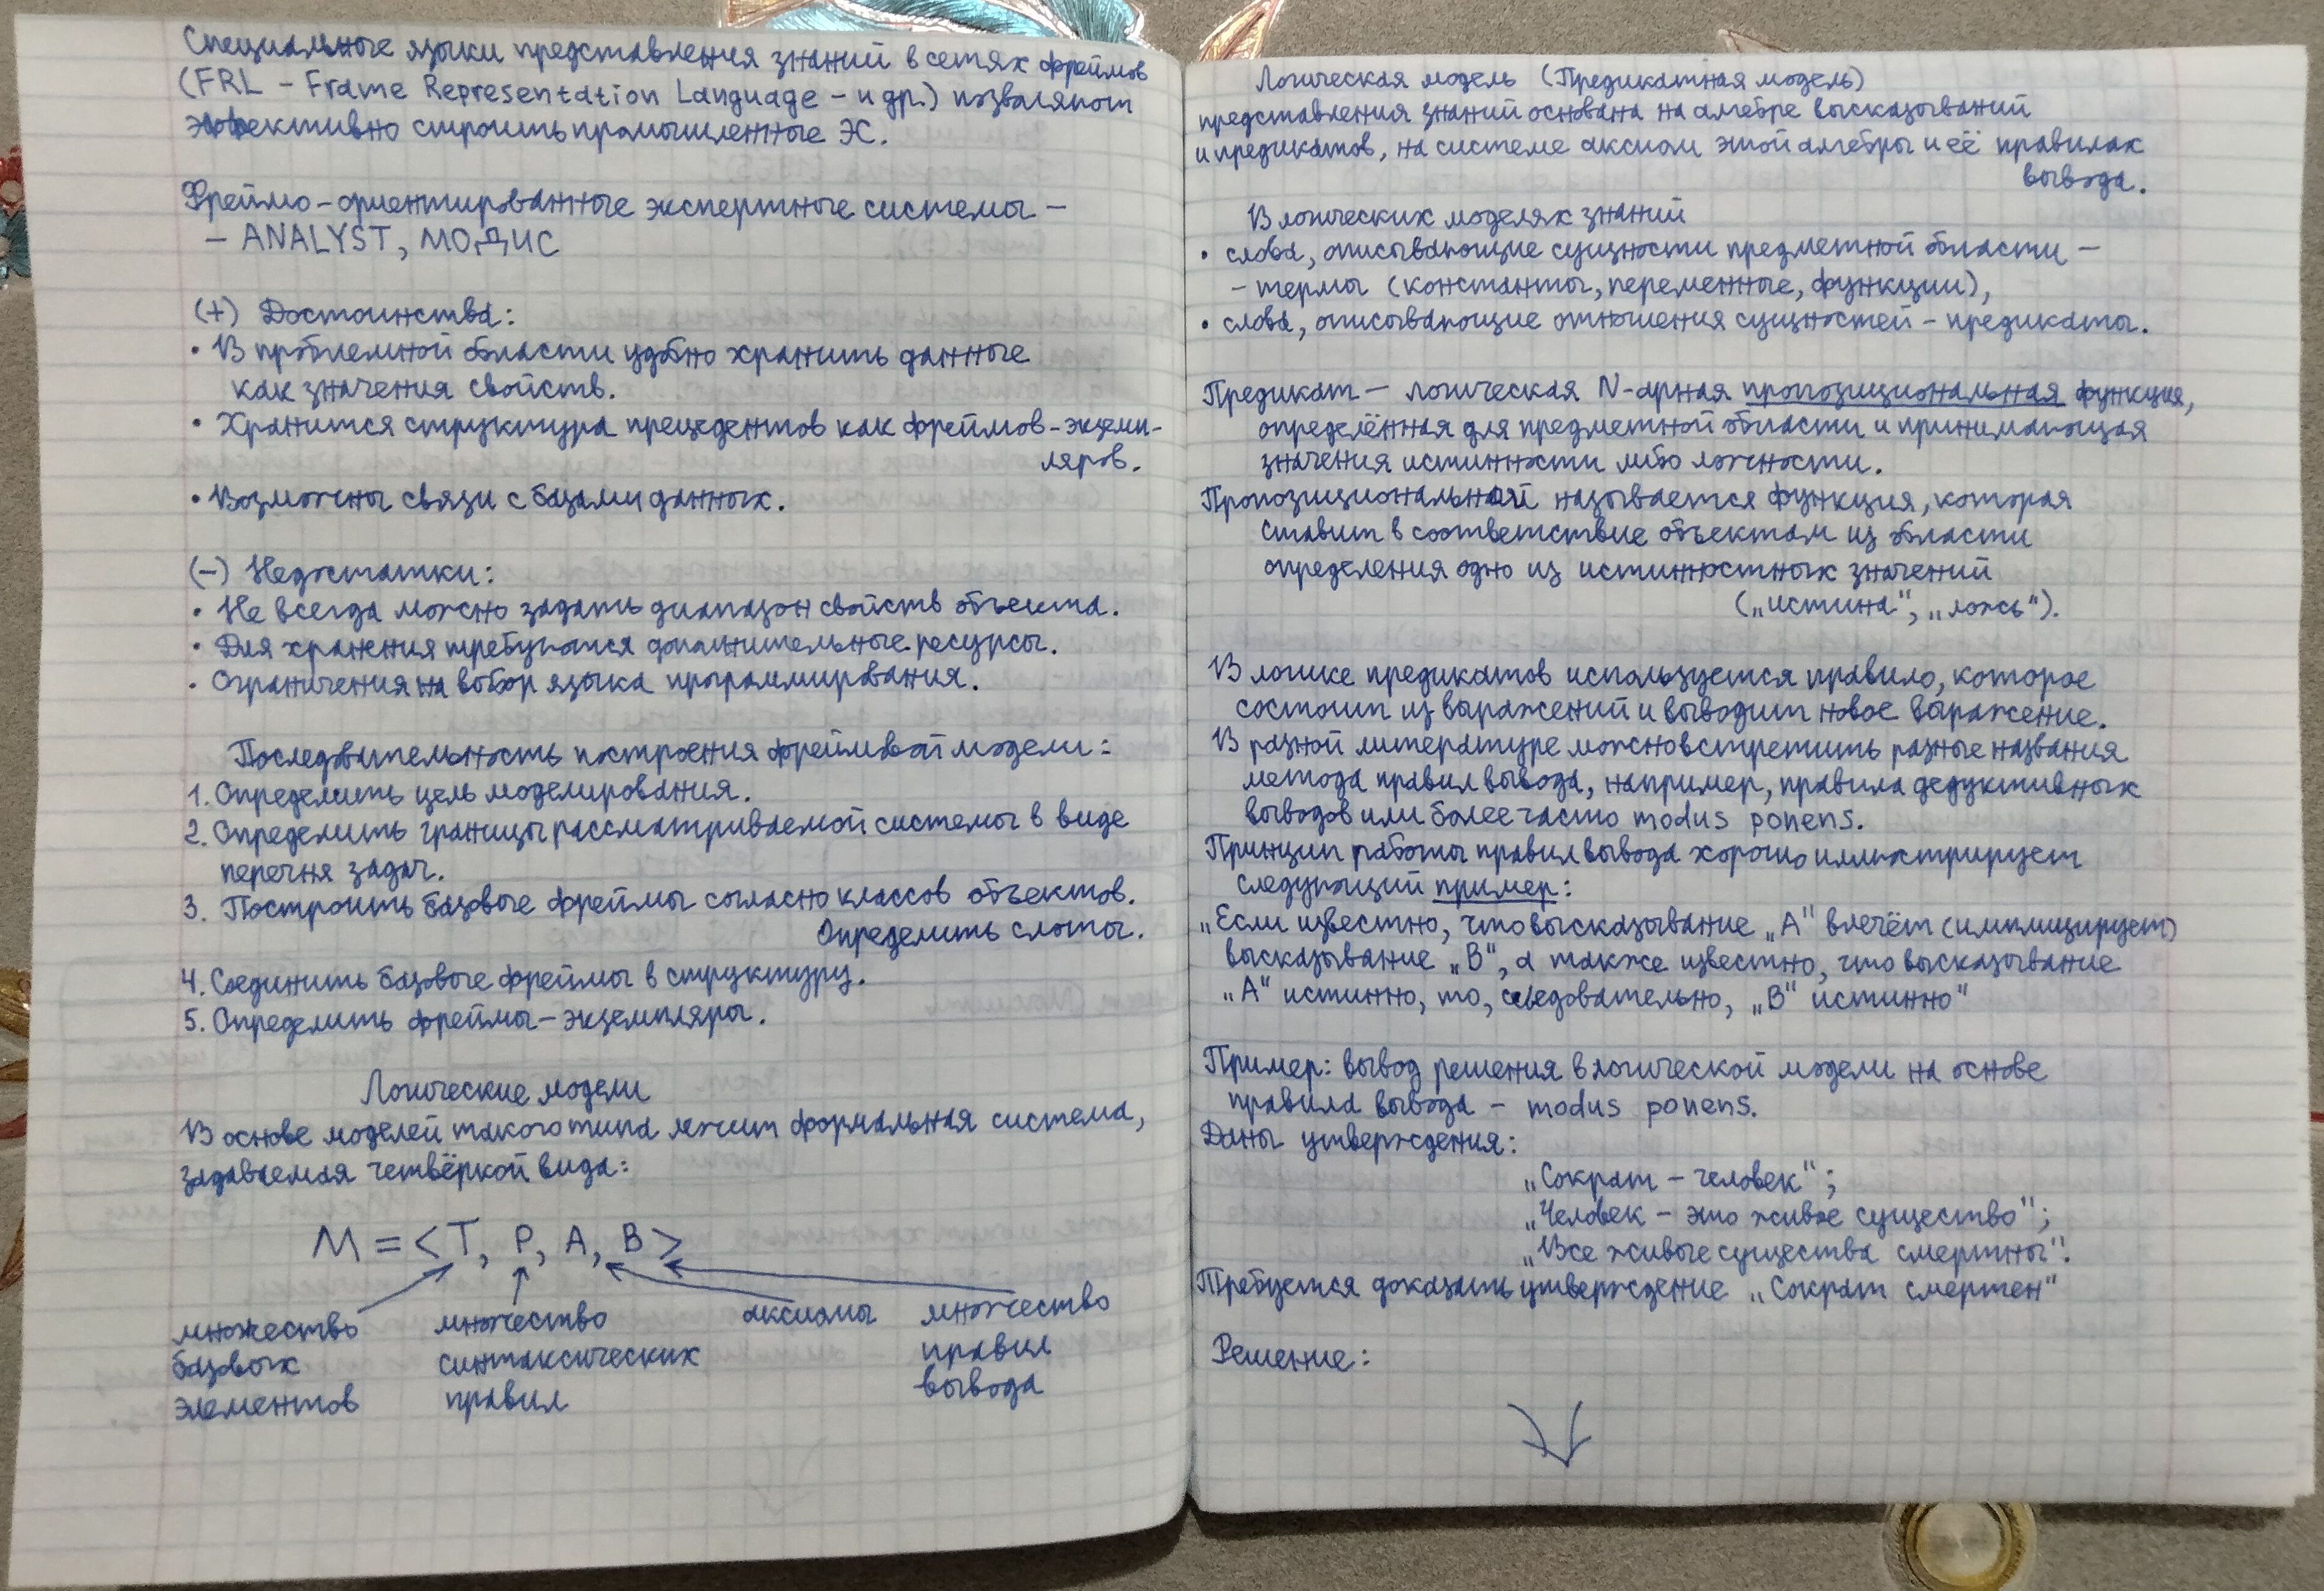 Специальные языки представления знаний в сетях фреймов
(FRL – Frame Representation Language – и др.) позволяют
эффективно строить промышленные ЭС.
Фреймо-ориентированные экспертные системы –
– ANALYST, МОДИС
(+) Достоинства:
• В проблемной области удобно хранить данные
как значения свойств.
• Хранится структура прецедентов как фреймов-экземп-
ляров.
• Возможны связи с базами данных.
(–) Недостатки:
• Не всегда можно задать диапазон свойств объекта.
• Для хранения требуются дополнительные ресурсы.
• Ограничения на выбор языка программирования.
Последовательность построения фреймовой модели:
1. Определить цель моделирования.
2. Определить границы рассматриваемой системы в виде
перечня задач.
3. Построить базовые фреймы согласно классов объектов.
Определить слоты.
4. Соединить базовые фреймы в структуру.
5. Определить фреймы-экземпляры.
Логические модели
В основе моделей такого типа лежит формальная система,
задаваемая четвёркой вида:
M = <T, P, A, B>
множество множество аксиомы множество
базовых синтаксических правил
элементов правил вывода
Логическая модель (Предикатная модель)
представления знаний основана на алгебре высказываний
и предикатов, на системе аксиом этой алгебры и её правилах
вывода.
В логических моделях знаний
• слова, описывающие сущности предметной области –
– термы (константы, переменные, функции),
• слова, описывающие отношения сущностей – предикаты.
Предикат – логическая N-арная пропозициональная функция,
определённая для предметной области и принимающая
значения истинности либо ложности.
Пропозициональной называется функция, которая
ставит в соответствие объектам из области
определения одно из истинностных значений
(„истина", „ложь").
В логике предикатов используется правило, которое
состоит из выражений и выводит новое выражение.
В разной литературе можно встретить разные названия
метода правил вывода, например, правила дедуктивных
выводов или более часто modus ponens.
Принцип работы правил вывода хорошо иллюстрирует
следующий пример:
„Если известно, что высказывание „А" влечёт (имплицирует)
высказывание „В", а также известно, что высказывание
„А" истинно, то, следовательно, „В" истинно"
Пример: вывод решения в логической модели на основе
правила вывода – modus ponens.
Даны утверждения:
„Сократ – человек";
„Человек – это живое существо";
„Все живые существа смертны".
Требуется доказать утверждение „Сократ смертен"
Решение: